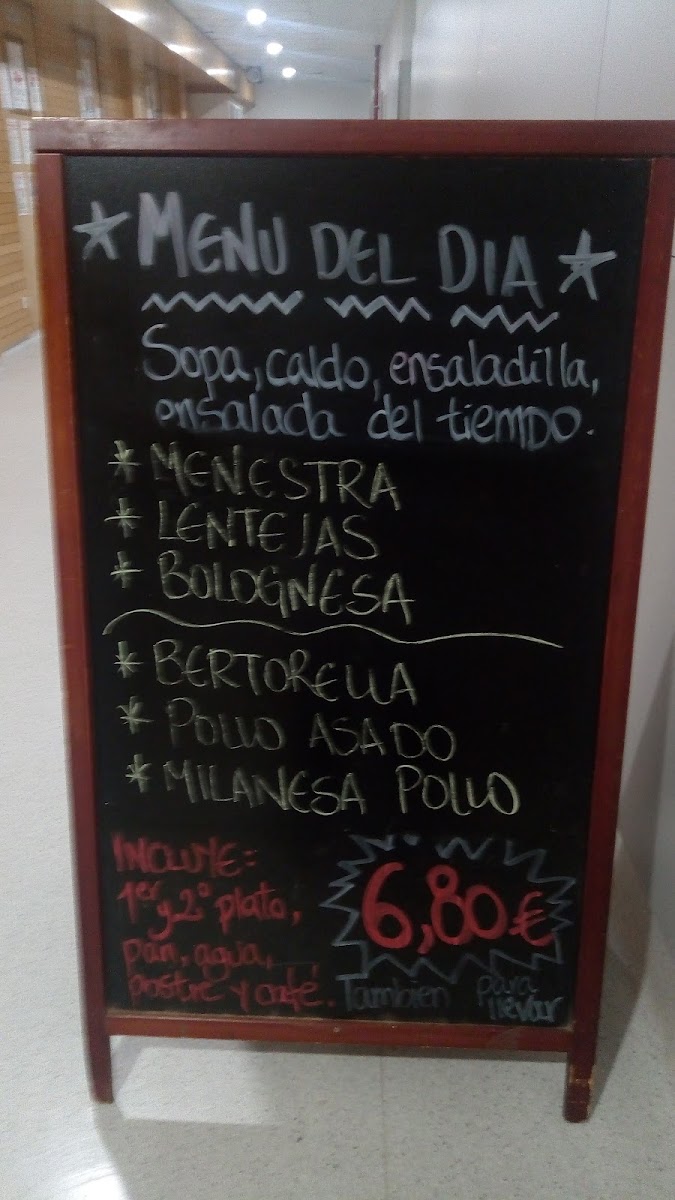 MENU DEL DIA
Sopa, caldo, ensaladilla,
ensalada del tiempo.
* MENESTRA
* LENTEJAS
* BOLOGNESA
* BERTORELLA
* POLLO ASADO
* MILANESA POLLO
INCLUYE:
1er y 2º plato,
pan, agua,
postre y café.
6,80€
Tambien para
llevar